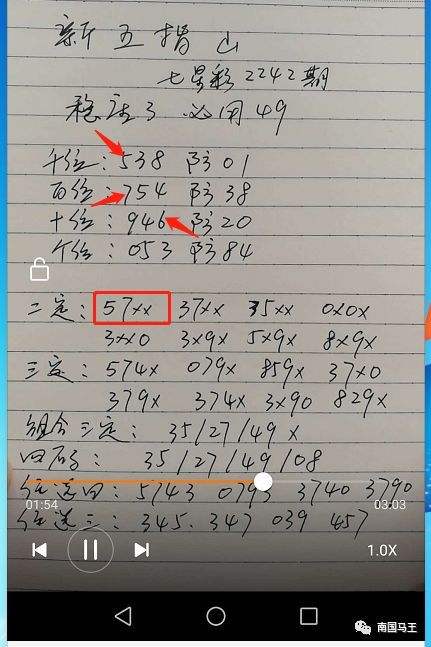 新五指山
七星彩2242期
稳胆3 必用49
千位:538 防01
百位:754 防38
十位:946 防20
个位:053 防84
二定: 57xx 37xx 35xx 0x0x
3xx0 3x9x 5x9x 8x9x
三定: 574x 079x 859x 37x0
379x 374x 3x90 829x
组合三定: 35/27/49x
四码: 35/27/49/08
任选四: 5743 0793 3740 3790
01:54 03:03
任选三: 345. 347 039 457
1.0X
南国马王